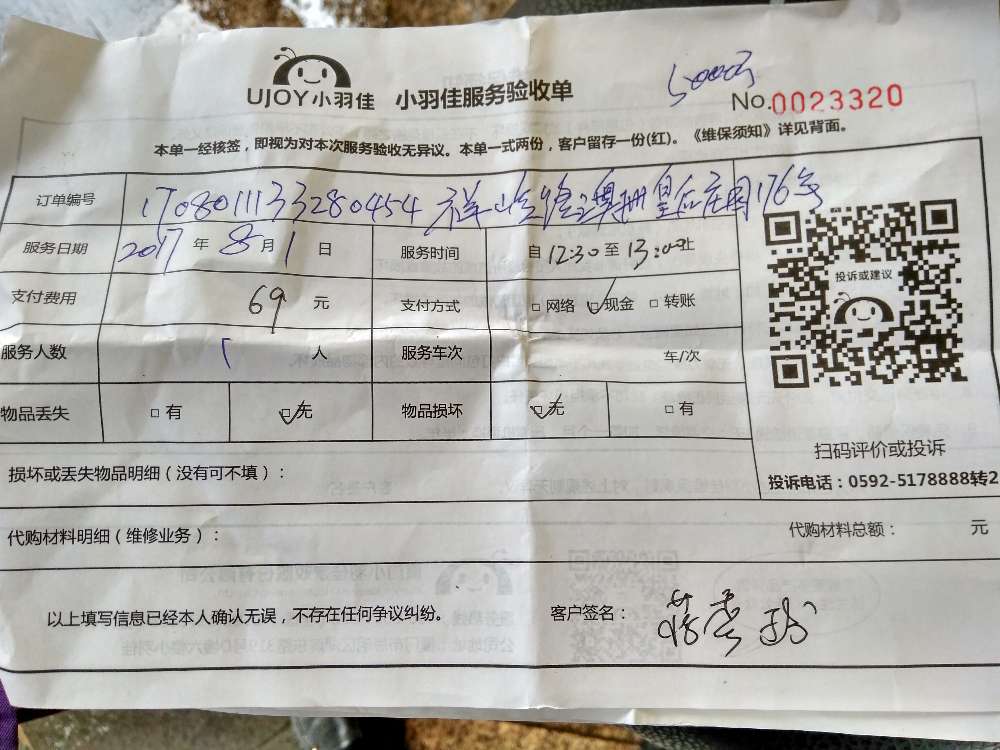 UJOY小羽佳 小羽佳服务验收单
No.0023320
本单一经核签，即视为对本次服务验收无异议。本单一式两份，客户留存一份(红)。《维保须知》详见背面。
订单编号 170801133280454 176号
服务日期 2017 年 8 月 1 日 服务时间 自 12:30 至 13:00 止
支付费用 69 元 支付方式 □ 网络 □ 现金 □ 转账
服务人数 1 人 服务车次 车/次
物品丢失 □ 有 □ 无 物品损坏 □ 无 □ 有
投诉或建议
扫码评价或投诉
投诉电话：0592-5178888转2
损坏或丢失物品明细（没有可不填）：
代购材料明细（维修业务）： 代购材料总额： 元
以上填写信息已经本人确认无误，不存在任何争议纠纷。 客户签名：